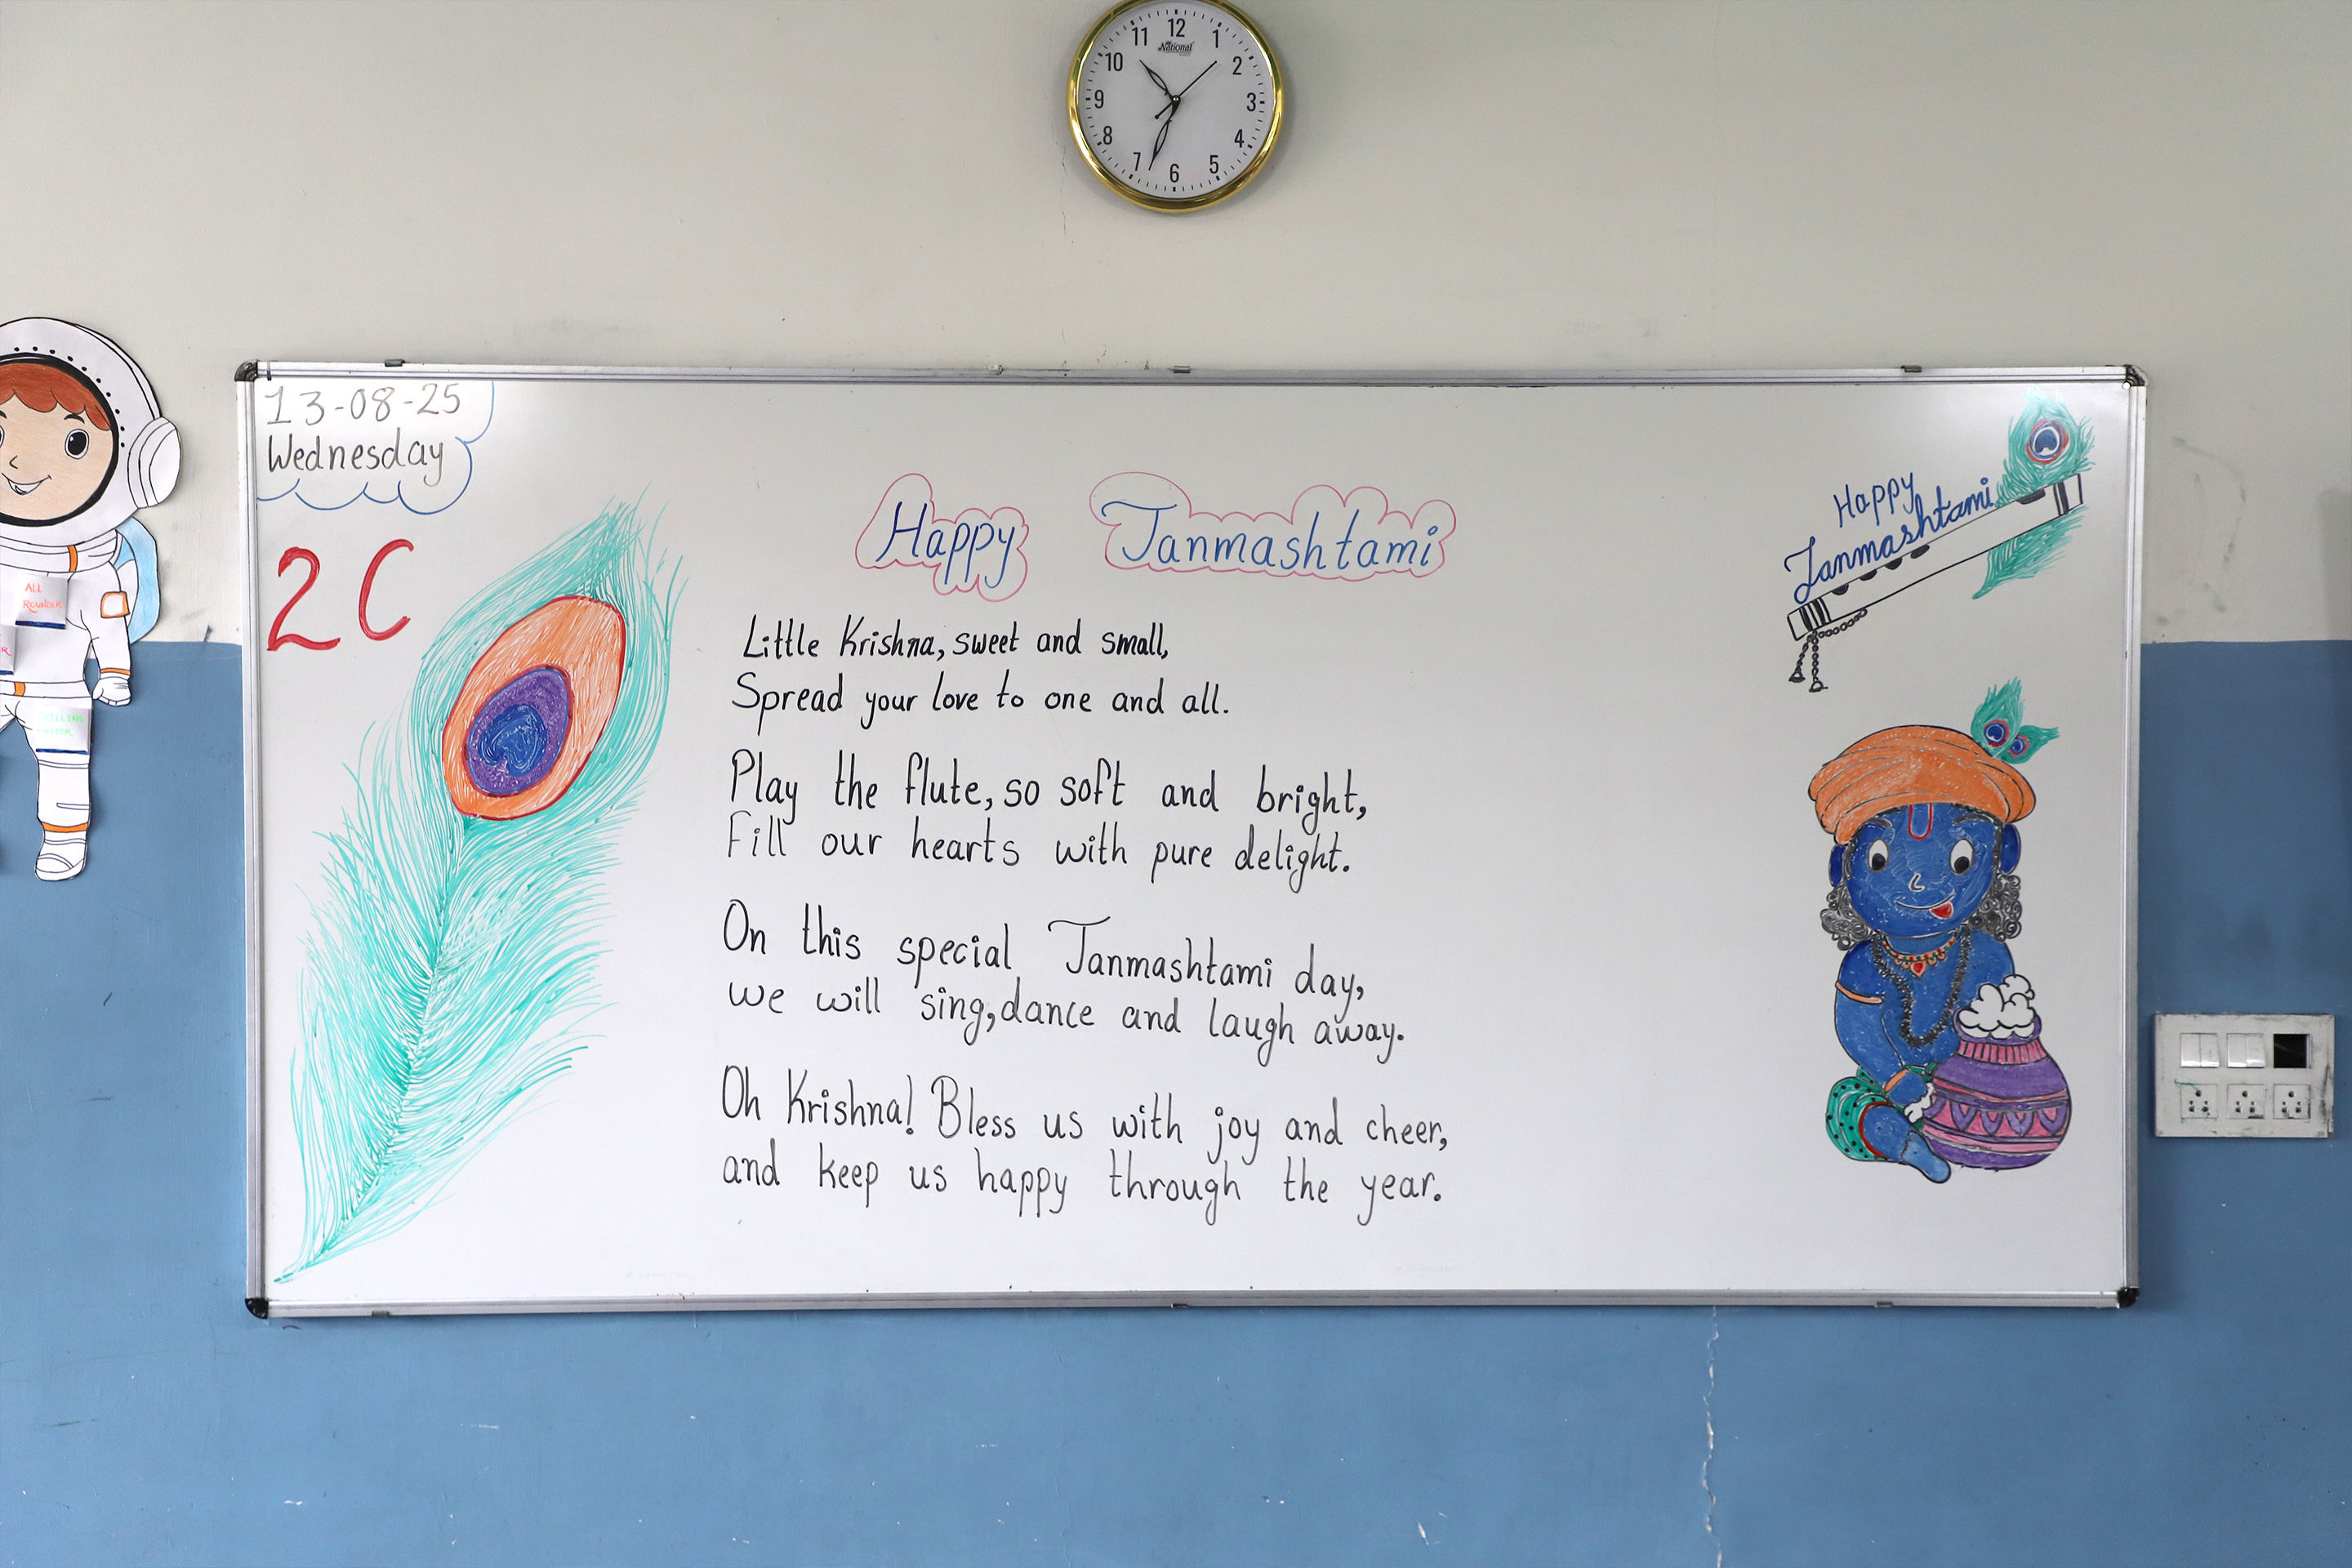 12
11
1
National
10
2
9
3
8
4
7
5
6
13-08-25
Wednesday
2C
Happy Janmashtami
Little Krishna, sweet and small,
Spread your love to one and all.
Play the flute, so soft and bright,
Fill our hearts with pure delight.
On this special Janmashtami day,
we will sing, dance and laugh away.
Oh Krishna! Bless us with joy and cheer,
and keep us happy through the year.
Happy
Janmashtami
ALL
ROUNDER